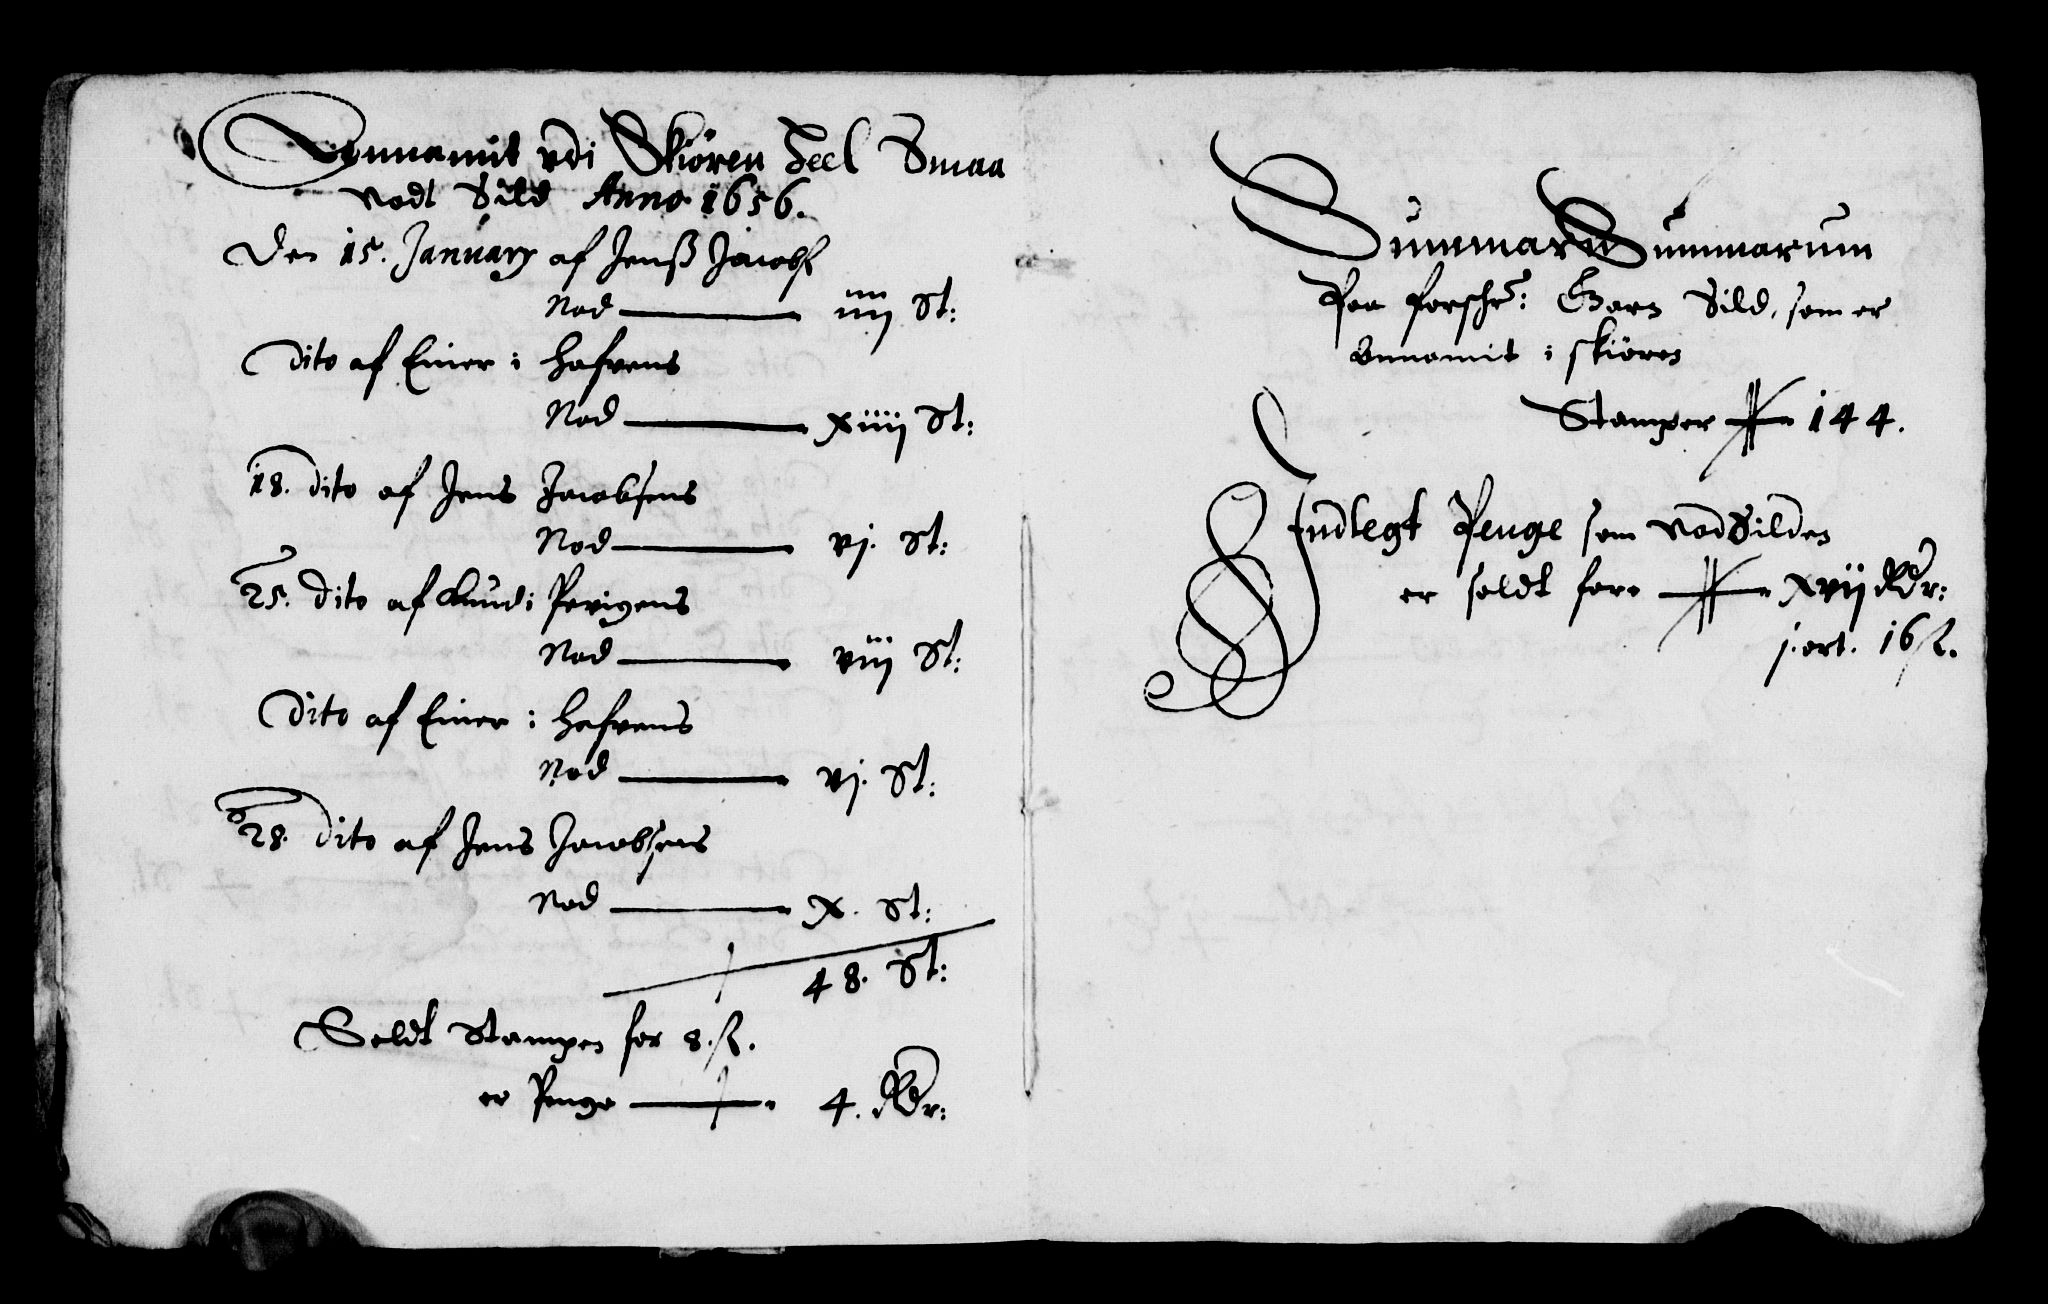 Annamit vdi Skiören Teel Smaa
Nodt Sild Anno 1656.
Den 15. January af Jenß Jacobs
Nod iiij St:
Dito af Einer i Hafrens
Nod xiiij St:
18. dito af Jens Jacobsens
Nod vj. St:
25. dito af Lund i Perigens
Nod viij St:
Dito af Einer i Hafrens
Nod vj. St:
28. dito af Jens Jacobsens
Nod x. St:
48. St:
Soldt Stampen for 8. ß.
er Penge 4. Rdr:
Summaru Summarum
Paa forschr: Garn Sild, som er
Annamit i skiören
Stamper 144.
Indlegt Penge som NodSilden
er soldt fore xvij Rdr:
j. ort. 16 ß.